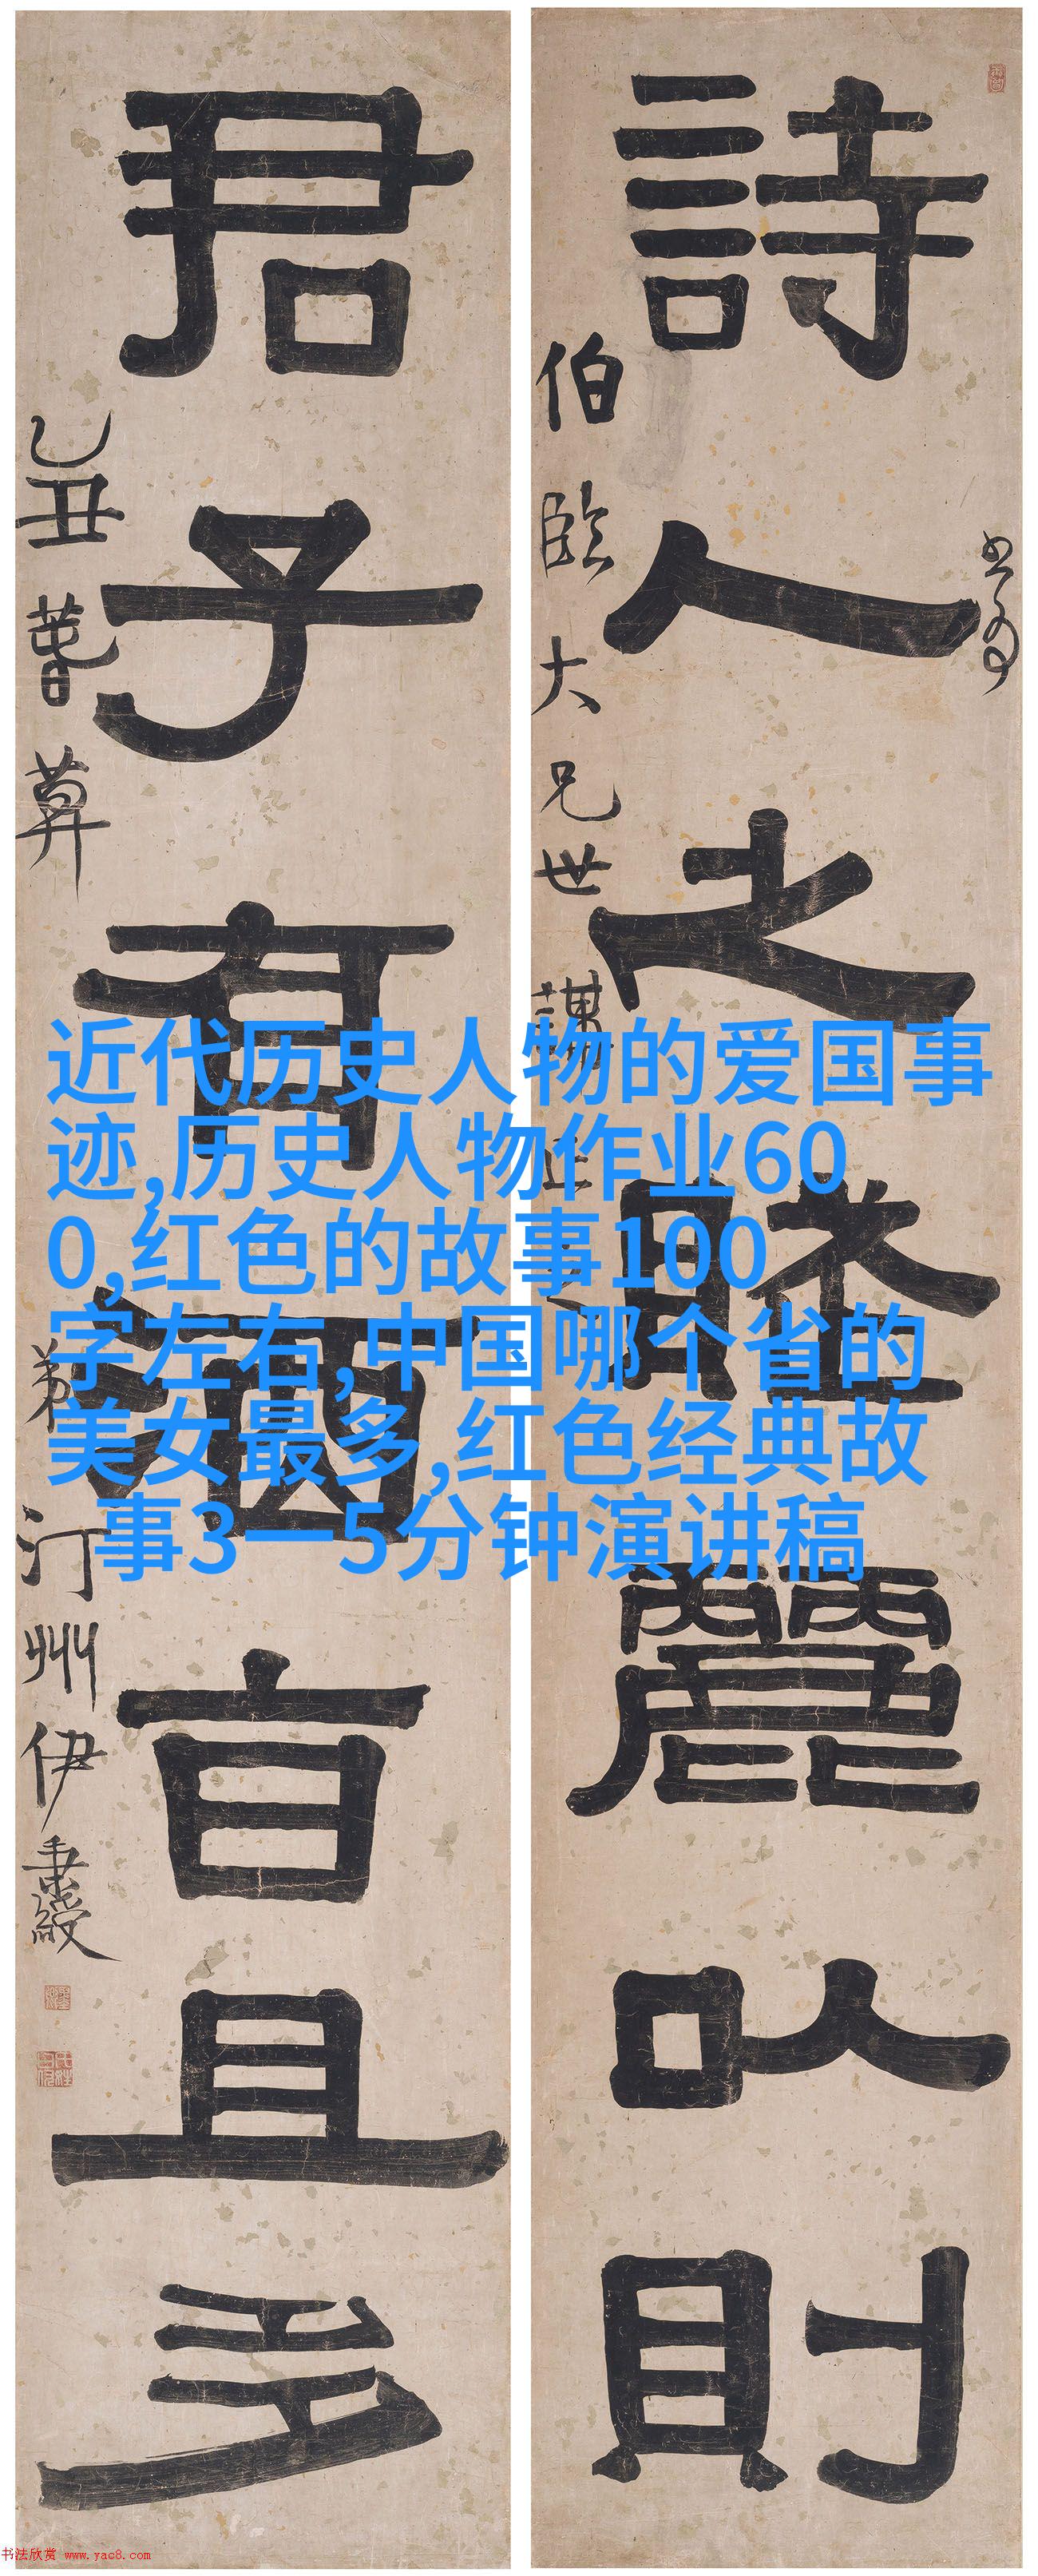 詩人之賦麗以則
書爲
伯臨大兄世講正之
君子有酒旨且多
乙丑暮春算
弟汀州伊秉綬
近代历史人物的爱国事
迹,历史人物作业60
0,红色的故事100
字左右,中国哪个省的
美女最多,红色经典故
事3一5分钟演讲稿
书法欣赏 www.yac8.com